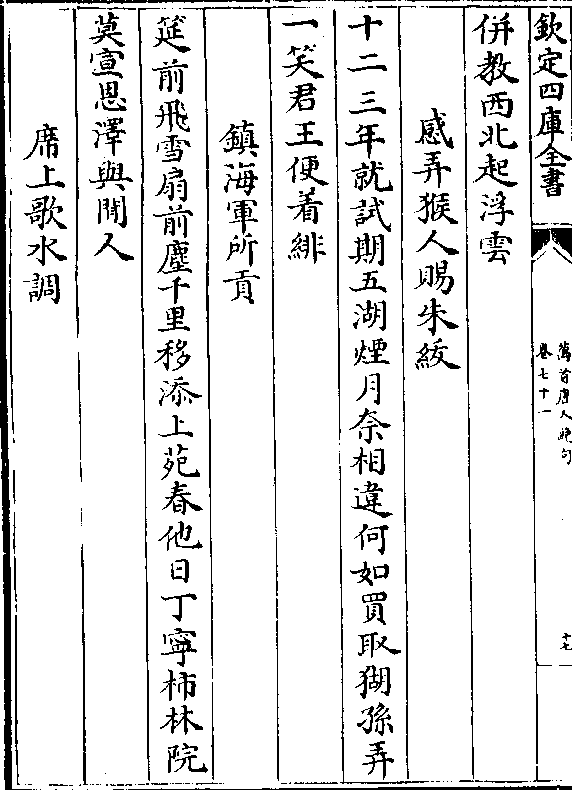 欽定四庫全書
萬首唐人絶句
卷七十一
十七
併教西北起浮雲
感弄猴人賜朱紱
十二三年就試期五湖煙月奈相違何如買取猢孫弄
一笑君王便着緋
鎮海軍所貢
筵前飛雪扇前塵千里移添上苑春他日丁寧柿林院
莫宣恩澤與閒人
席上歌水調